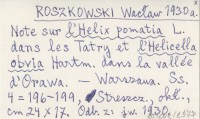 ROSZKOWSKI Wacław 1930a.
Note sur l'Helix pomatia L.
dans les Tatry et l'Helicella
obvia Hartm. dans la vallée
d'Orawa. — Warszawa. Ss.
4 = 196-199, Streszcz., okł.,
cm 24 x 17. Odb. z: jw. 1930.